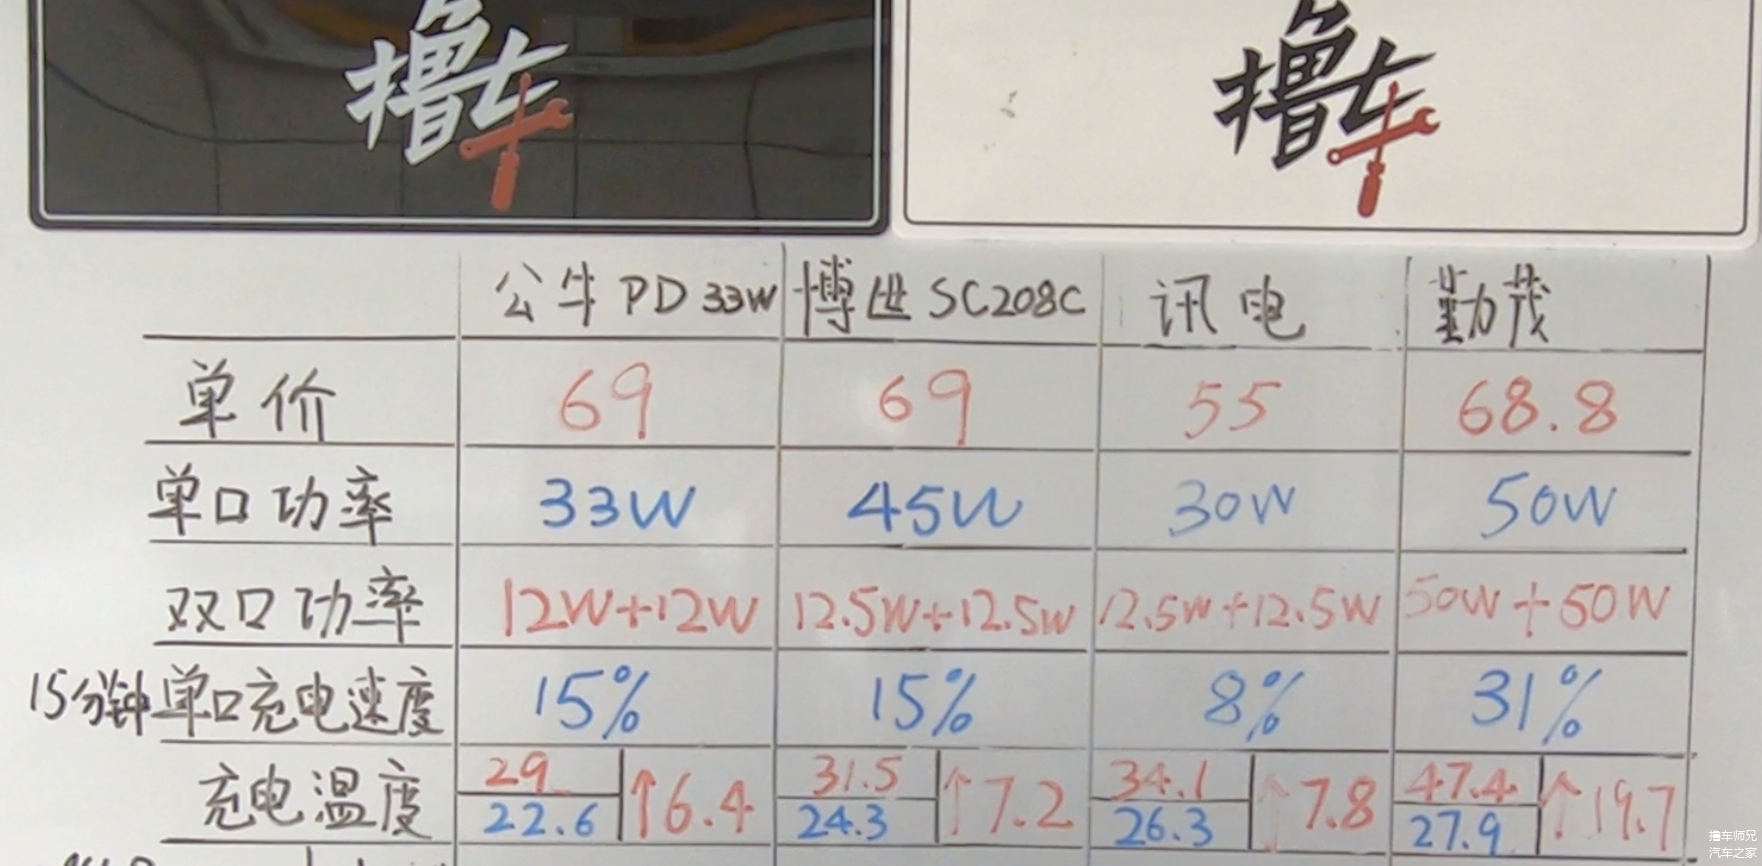 撸车 撸车
公牛 PD 33W 博世 SC208C 讯电 勤茂
单价 69 69 55 68.8
单口功率 33W 45W 30W 50W
双口功率 12W+12W 12.5W+12.5W 12.5W+12.5W 50W+50W
15分钟单口充电速度 15% 15% 8% 31%
29 31.5 34.1 47.4
充电温度 ↑6.4 ↑7.2 ↑7.8 ↑19.7
22.6 24.3 26.3 27.9
撸车师兄
汽车之家